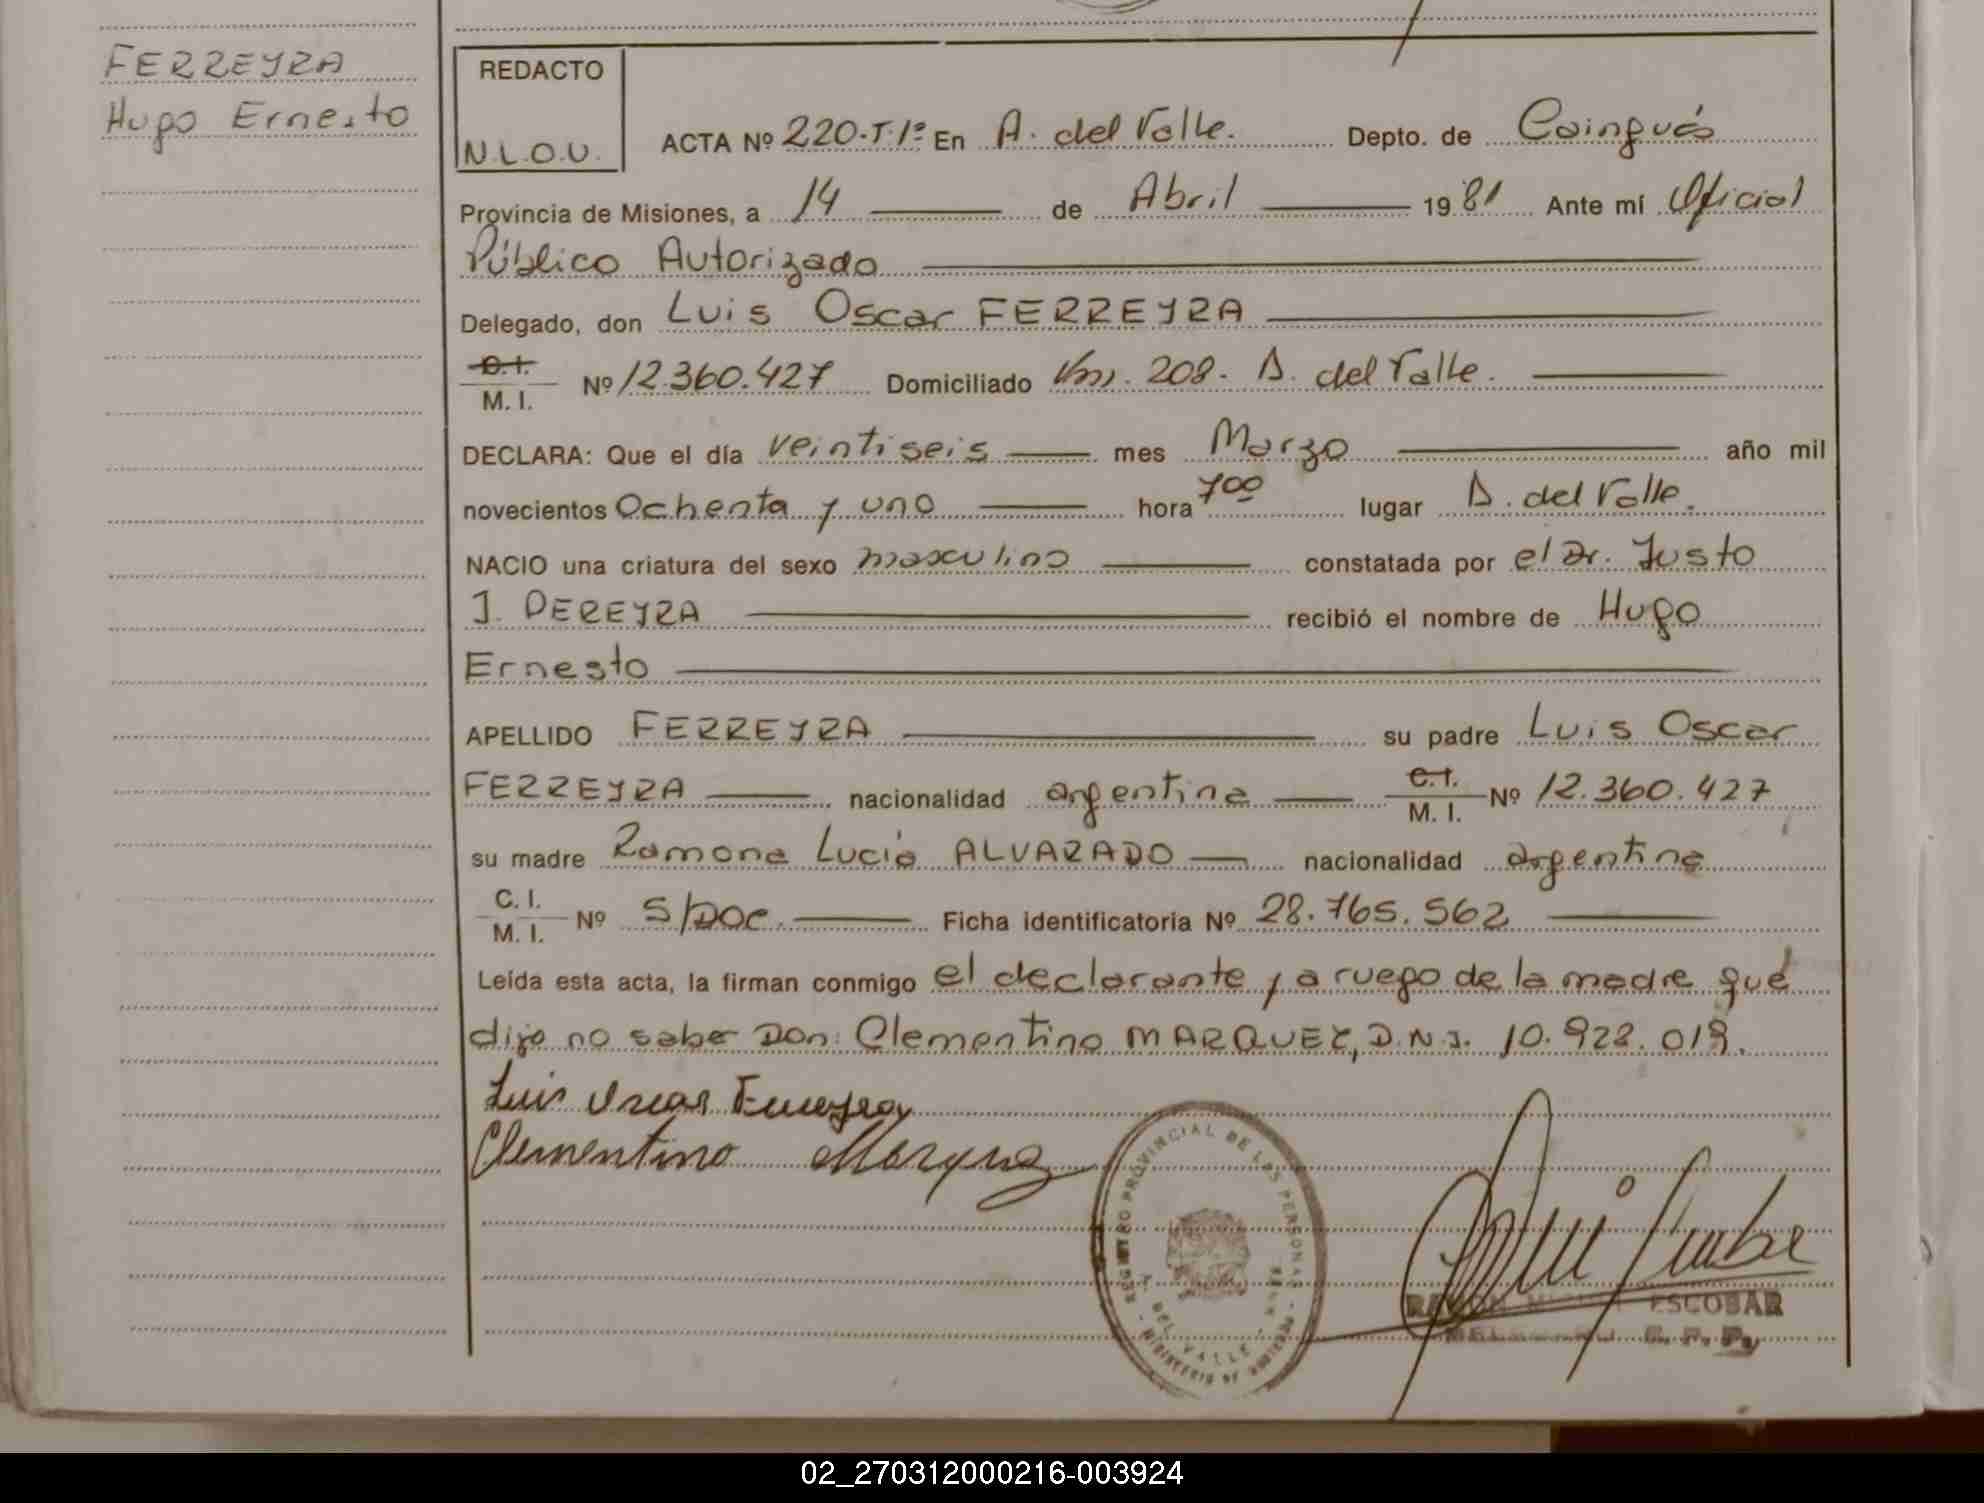 FERREYRA
Hugo Ernesto
REDACTO
N.L.O.U.
ACTA Nº 220-T.1º En A. del Valle. Depto. de Caínguás
Provincia de Misiones, a 14 de Abril 1981 Ante mí Oficial
Público Autorizado
Delegado, don Luis Oscar FERREYRA
C.I.
M.I. Nº 12.360.427 Domiciliado Km. 208. A. del Valle.
DECLARA: Que el día veintiseis mes Marzo año mil
novecientos Ochenta y uno hora 7oo lugar A. del Valle.
NACIO una criatura del sexo masculino constatada por el Dr. Justo
J. PEREYRA recibió el nombre de Hugo
Ernesto
APELLIDO FERREYRA su padre Luis Oscar
FERREYRA nacionalidad argentina C.I.
M.I. Nº 12.360.427
su madre Ramona Lucía ALVARADO nacionalidad argentina
C.I.
M.I. Nº S/DOC. Ficha identificatoria Nº 28.765.562
Leída esta acta, la firman conmigo el declarante y a ruego de la madre que
dijo no saber Don: Clementino MARQUEZ, D.N.I. 10.928.019.
Luis Oscar Ferreyra
Clementino Marquez
REGISTRO PROVINCIAL DE LAS PERSONAS
A. DEL VALLE
MINISTERIO DE GOBIERNO
ESCOBAR
02_270312000216-003924